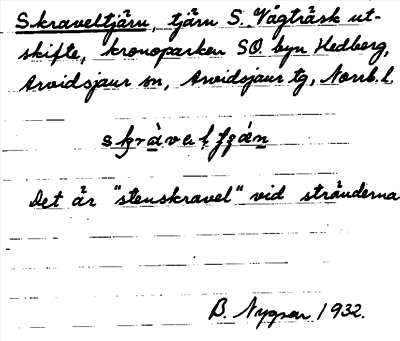 Skraveltjärn, tjärn S. Vågträsk ut-
skifte, kronoparken SO. byn Hedberg,
Arvidsjaur sn, Arvidsjaur tg, Norrb. l.
Det är "stenskravel" vid stränderna
B. Nygren 1932.